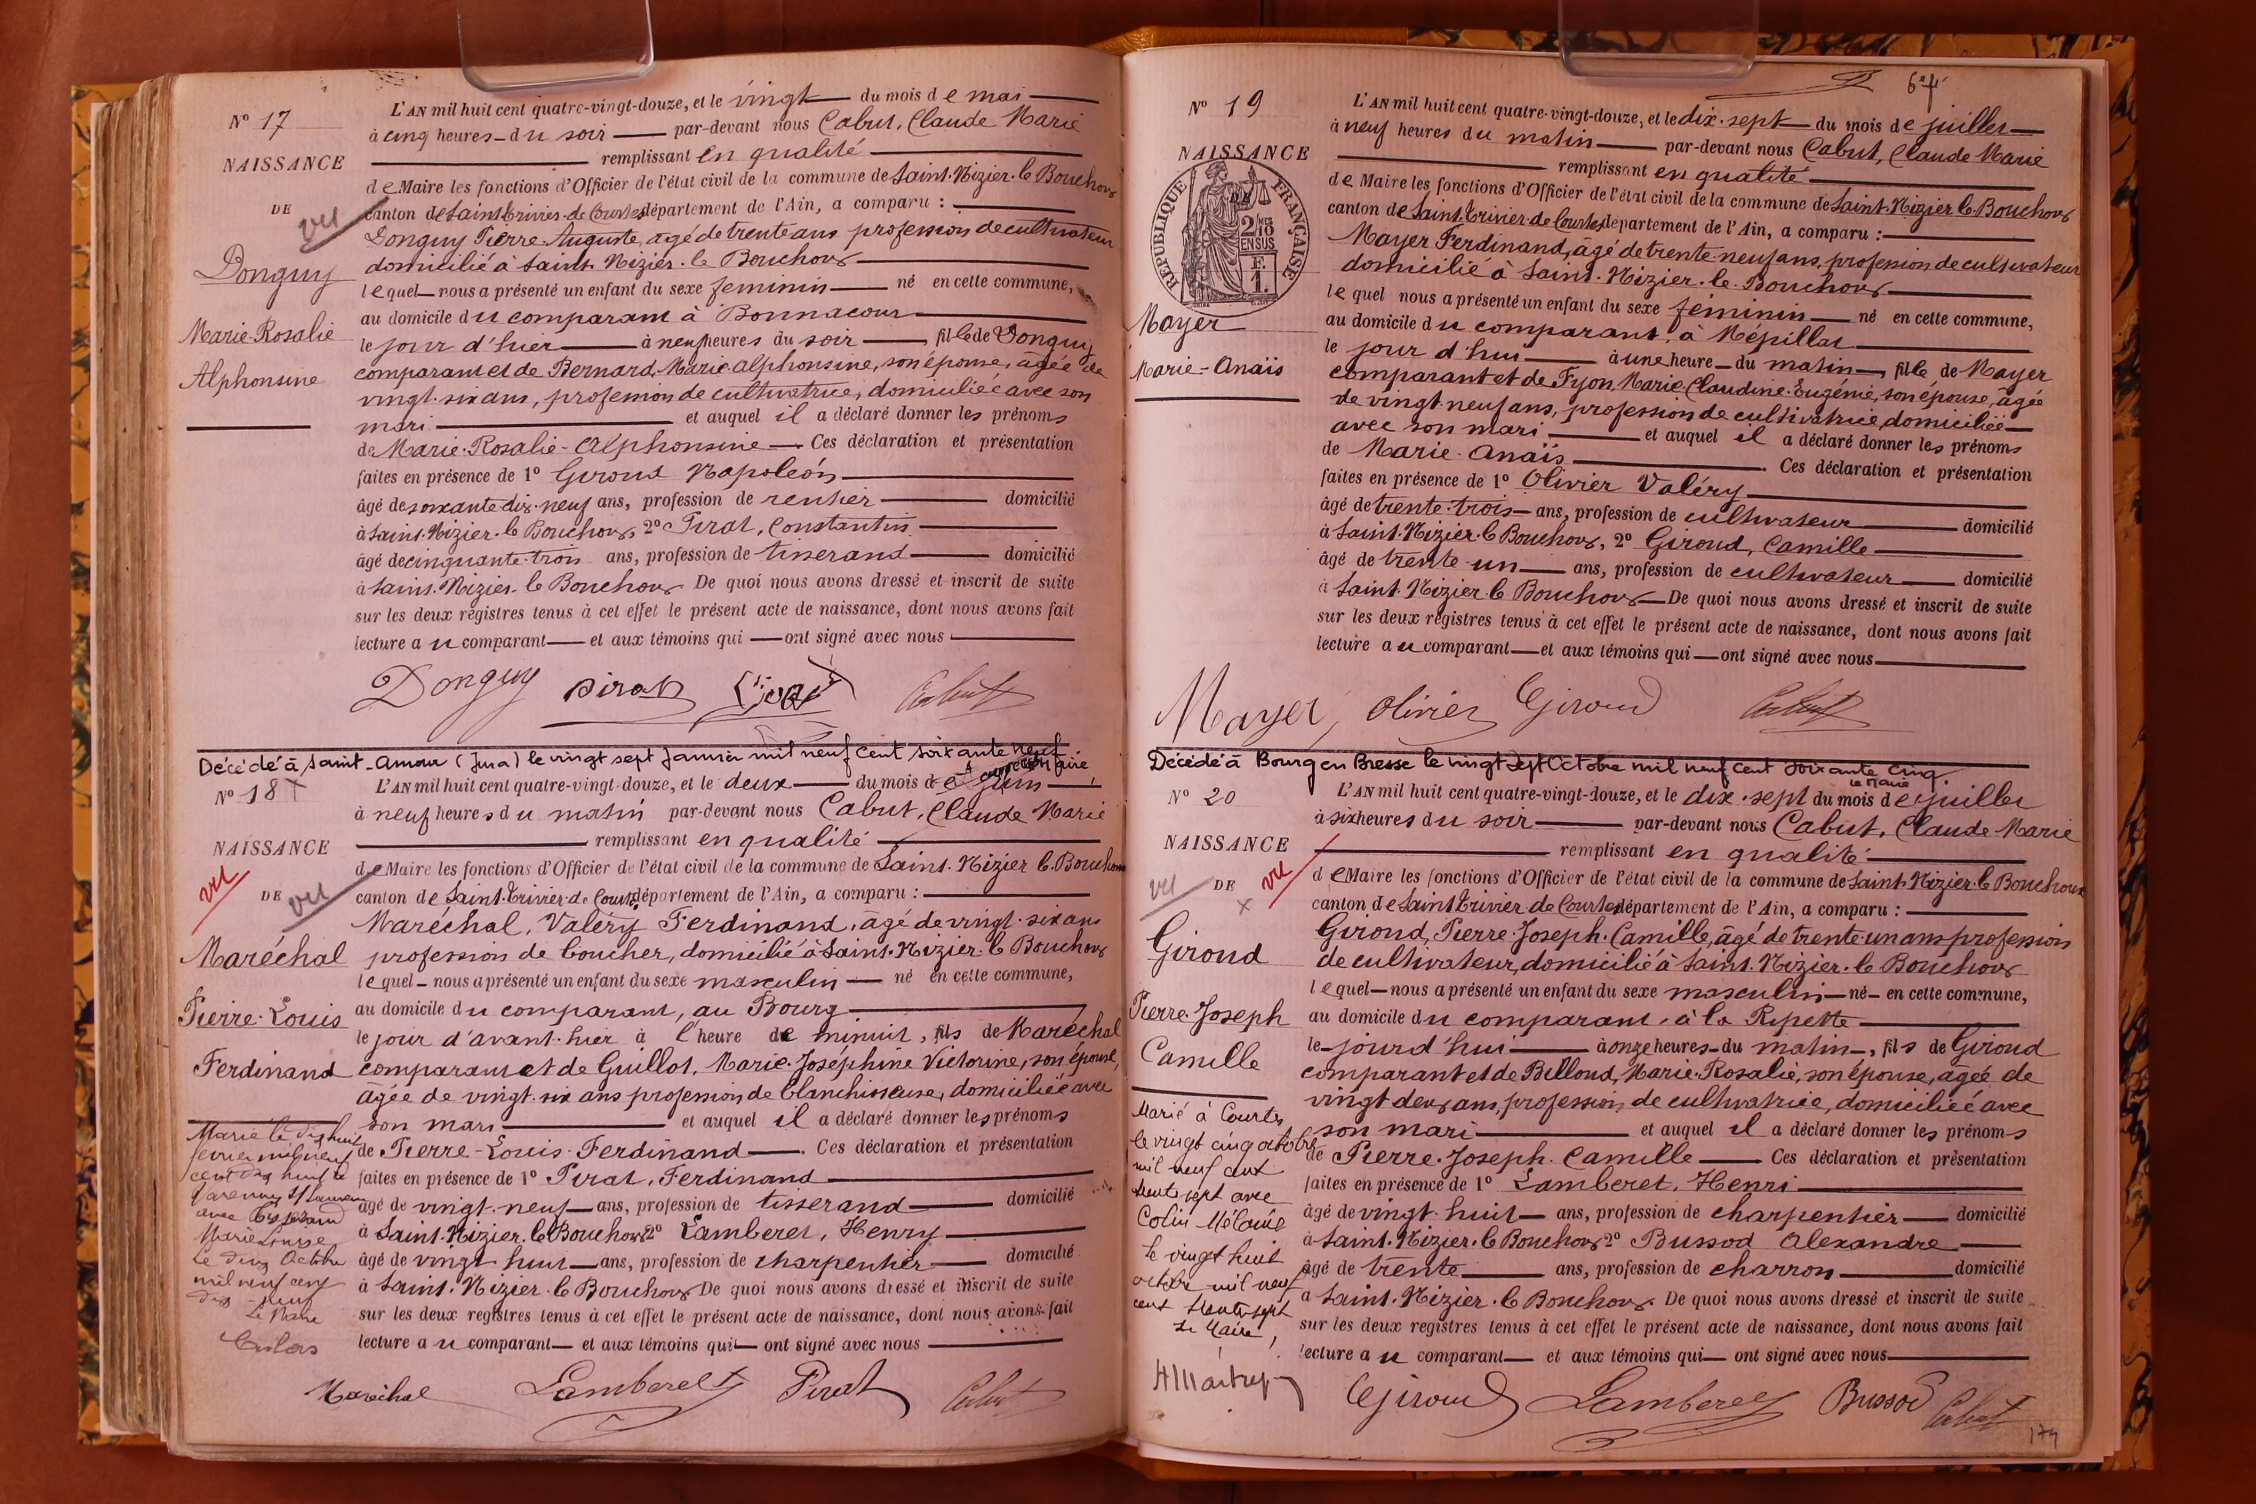 N° 17
NAISSANCE
DE
vu
Donguy
Marie-Rosalie
Alphonsine
L'AN mil huit cent quatre-vingt-douze, et le vingt du mois de mai
à cinq heures du soir par-devant nous Cabut, Claude Marie
remplissant en qualité
de Maire les fonctions d'Officier de l'état civil de la commune de Saint-Nizier-le Bouchoux
canton de Saint-Trivier-de Courtes département de l'Ain, a comparu :
Donguy Pierre-Auguste, âgé de trente ans profession de cultivateur
domicilié à Saint-Nizier-le Bouchoux
lequel nous a présenté un enfant du sexe féminin né en cette commune,
au domicile du comparant à Bonnacour
le jour d'hier à neuf heures du soir, fille de Donguy
comparant et de Bernard Marie alphonsine, son épouse, âgée de
vingt-six ans, profession de cultivatrice, domiciliée avec son
mari et auquel il a déclaré donner les prénoms
de Marie-Rosalie-Alphonsine. Ces déclaration et présentation
faites en présence de 1° Giroud Napoléon
âgé de soixante-dix-neuf ans, profession de rentier domicilié
à Saint-Nizier-le Bouchoux, 2° Pirat, Constantin
âgé de cinquante-trois ans, profession de tisserand domicilié
à Saint-Nizier-le Bouchoux De quoi nous avons dressé et inscrit de suite
sur les deux registres tenus à cet effet le présent acte de naissance, dont nous avons fait
lecture au comparant et aux témoins qui ont signé avec nous
Donguy Pirat Cabut
Décédé à Saint-Amour (Jura) le vingt sept Janvier mil neuf cent soixante neuf
N° 18
NAISSANCE
DE
vu
vu
Maréchal
Pierre-Louis
Ferdinand
L'AN mil huit cent quatre-vingt-douze, et le deux du mois de Juin
à neuf heures du matin par-devant nous Cabut, Claude Marie
remplissant en qualité
de Maire les fonctions d'Officier de l'état civil de la commune de Saint-Nizier-le-Bouchoux
canton de Saint-Trivier-de Courtes département de l'Ain, a comparu :
Maréchal, Valéry Ferdinand, âgé de vingt-six ans
profession de boucher, domicilié à Saint-Nizier-le Bouchoux
lequel nous a présenté un enfant du sexe masculin né en cette commune,
au domicile du comparant, au Bourg
le jour d'avant-hier à l'heure de minuit, fils de Maréchal
comparant et de Guillot, Marie-Joséphine Victorine, son épouse,
âgée de vingt-six ans profession de blanchisseuse, domiciliée avec
son mari et auquel il a déclaré donner les prénoms
de Pierre-Louis-Ferdinand. Ces déclaration et présentation
faites en présence de 1° Pirat, Ferdinand
âgé de vingt-neuf ans, profession de tisserand domicilié
à Saint-Nizier-le Bouchoux 2° Lamberet, Henry
âgé de vingt huit ans, profession de charpentier domicilié
à Saint-Nizier-le Bouchoux De quoi nous avons dressé et inscrit de suite
sur les deux registres tenus à cet effet le présent acte de naissance, dont nous avons fait
lecture au comparant et aux témoins qui ont signé avec nous
Marié le dix huit
février mil neuf
cent dix neuf à
Varennes St Sauveur
avec
Marie Louise
Le dix Octobre
mil neuf cent
dix-neuf
Le Maire
Maréchal Lamberet Pirat Cabut
64
N° 19
NAISSANCE
DE
RÉPUBLIQUE FRANÇAISE
2/10
EN SUS
F.
1.
Mayer
Marie-Anaïs
L'AN mil huit cent quatre-vingt-douze, et le dix-sept du mois de juillet
à neuf heures du matin par-devant nous Cabut, Claude Marie
remplissant en qualité
de Maire les fonctions d'Officier de l'état civil de la commune de Saint-Nizier-le-Bouchoux
canton de Saint-Trivier-de Courtes département de l'Ain, a comparu :
Mayer Ferdinand, âgé de trente-neuf ans, profession de cultivateur
domicilié à Saint-Nizier-le-Bouchoux
lequel nous a présenté un enfant du sexe féminin né en cette commune,
au domicile du comparant, à Népillat
le jour d'hui à une heure du matin, fille de Mayer
comparant et de Fyon, Marie-Claudine-Eugénie, son épouse, âgée
de vingt-neuf ans, profession de cultivatrice, domiciliée
avec son mari et auquel il a déclaré donner les prénoms
de Marie-Anaïs. Ces déclaration et présentation
faites en présence de 1° Olivier Valéry
âgé de trente-trois ans, profession de cultivateur domicilié
à Saint-Nizier-le Bouchoux, 2° Giroud, Camille
âgé de trente-un ans, profession de cultivateur domicilié
à Saint-Nizier-le Bouchoux De quoi nous avons dressé et inscrit de suite
sur les deux registres tenus à cet effet le présent acte de naissance, dont nous avons fait
lecture au comparant et aux témoins qui ont signé avec nous
Mayer Olivier Giroud Cabut
Décédé à Bourg en Bresse le vingt sept Octobre mil neuf cent soixante cinq.
Le Maire
N° 20
NAISSANCE
DE
vu
vu
Giroud
Pierre-Joseph
Camille
L'AN mil huit cent quatre-vingt-douze, et le dix-sept du mois de juillet
à six heures du soir par-devant nous Cabut, Claude Marie
remplissant en qualité
de Maire les fonctions d'Officier de l'état civil de la commune de Saint-Nizier-le Bouchoux
canton de Saint-Trivier de Courtes département de l'Ain, a comparu :
Giroud, Pierre-Joseph-Camille, âgé de trente-un ans profession
de cultivateur, domicilié à Saint-Nizier-le Bouchoux
lequel nous a présenté un enfant du sexe masculin né en cette commune,
au domicile du comparant, à la Ripette
le jour d'hui à onze heures du matin, fils de Giroud
comparant et de Billoud, Marie-Rosalie, son épouse, âgée de
vingt deux ans, profession de cultivatrice, domiciliée avec
son mari et auquel il a déclaré donner les prénoms
de Pierre-Joseph-Camille Ces déclaration et présentation
faites en présence de 1° Lamberet, Henri
âgé de vingt-huit ans, profession de charpentier domicilié
à Saint-Nizier-le Bouchoux 2° Bussod Alexandre
âgé de trente ans, profession de charron domicilié
à Saint-Nizier-le Bouchoux De quoi nous avons dressé et inscrit de suite
sur les deux registres tenus à cet effet le présent acte de naissance, dont nous avons fait
lecture au comparant et aux témoins qui ont signé avec nous
Marié à Courtes
le vingt cinq octobre
mil neuf cent
trente sept avec
Colin Mélanie
le vingt huit
octobre mil neuf
cent trente sept
Le Maire,
Giroud Lamberet Bussod Cabut
179